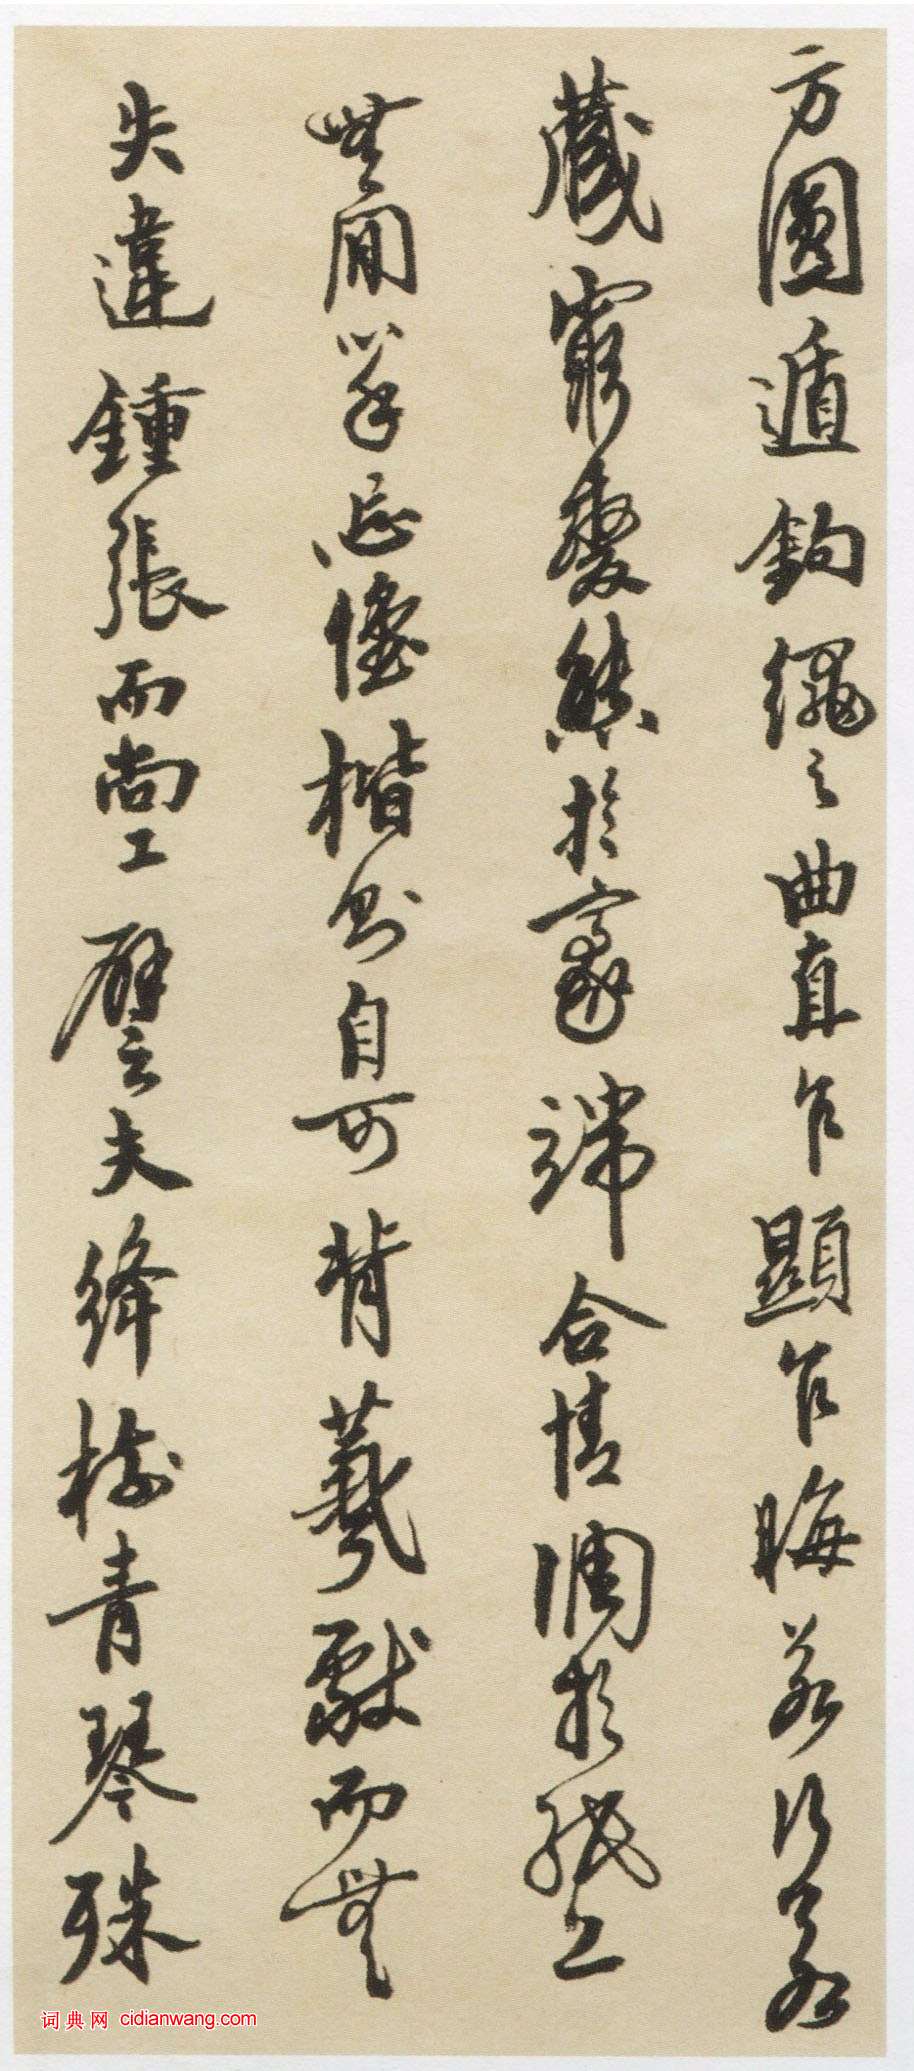 方圓遁鉤繩之曲直乍顯乍晦若行若
藏窮變態於豪端合情調於紙上
無間心手忘懷楷則自可背羲獻而無
失違鍾張而尚工譬夫絳樹青琴殊
词典网 cidianwang.com